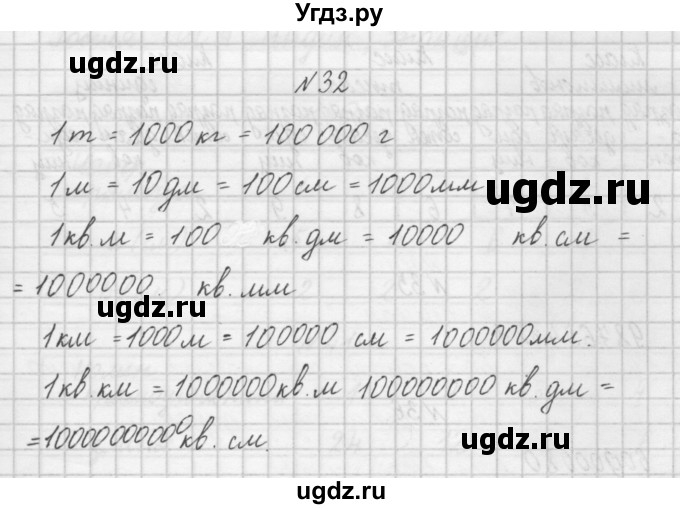 Угдз.ру
ugdz.ru
N 32
1т = 1000кг = 100 000 г
1м = 10дм = 100см = 1000мм
ugdz.ru
1кв.м = 100 кв.дм = 10000 кв.см =
= 1000000. кв.мм
ugdz.ru
1км = 1000м = 100000 см = 1000000мм.
1кв.км = 1000000кв.м 100000000 кв.дм =
= 10000000000 кв.см.
ugdz.ru
ugdz.ru
ugdz.ru